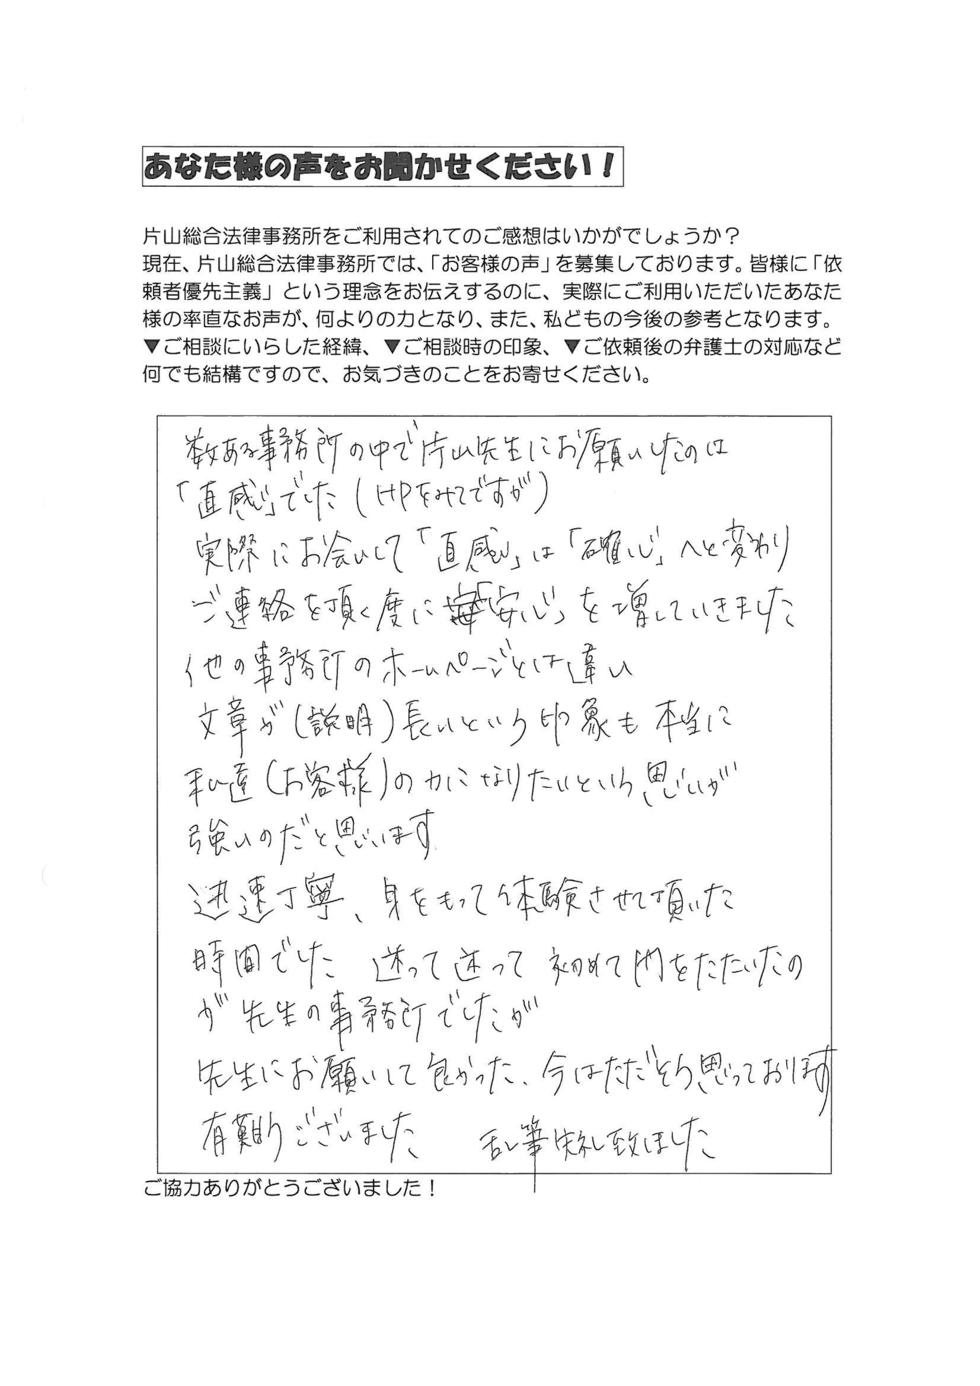 あなた様の声をお聞かせください！
片山総合法律事務所をご利用されてのご感想はいかがでしょうか？
現在、片山総合法律事務所では、「お客様の声」を募集しております。皆様に「依
頼者優先主義」という理念をお伝えするのに、実際にご利用いただいたあなた
様の率直なお声が、何よりの力となり、また、私どもの今後の参考となります。
▼ご相談にいらした経緯、▼ご相談時の印象、▼ご依頼後の弁護士の対応など
何でも結構ですので、お気づきのことをお寄せください。
数ある事務所の中で片山先生にお願いしたのは
「直感」でした（HPをみてですが）
実際にお会いして「直感」は「確心」へと変わり
ご連絡を頂く度に「安心」を増していきました
他の事務所のホームページとは違い
文章が（説明）長いという印象も本当に
私達（お客様）の力になりたいという思いが
強いのだと思います
迅速丁寧、身をもって体験させて頂いた
時間でした 迷って迷って初めて門をたたいたの
が先生の事務所でしたが
先生にお願いして良かった、今はただそう思っております
有難うございました 乱筆失礼致しました
ご協力ありがとうございました！